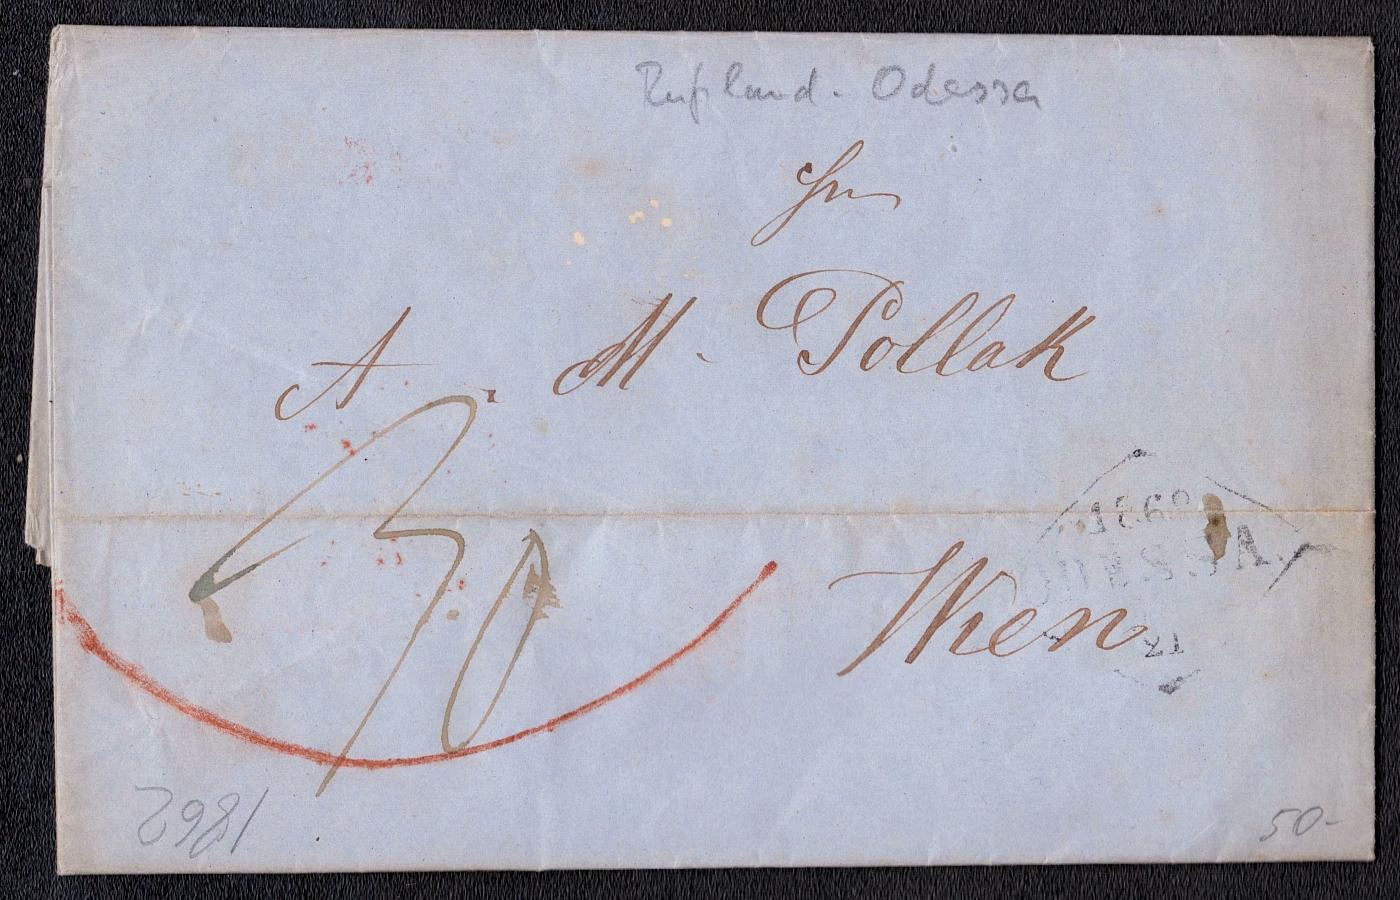 Rußland - Odessa
Hrn
A. M. Pollak
30
ODESSA.
Wien
1862
50-